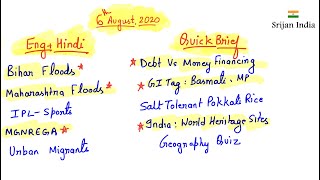 6th August, 2020
Srijan India
Eng + Hindi
Bihar Floods ★
Maharashtra Floods ★
IPL - Sports
MGNREGA ★
Urban Migrants
Quick Brief
★ Debt Vs Money Financing
★ GI Tag : Basmati - MP
Salt Tolerant Pokkali Rice
★ India : World Heritage Sites
Geography Quiz